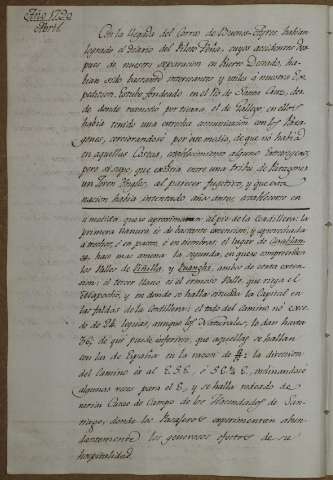 Año 1790
Abril
Con la llegada del Correo de Buenos-Ayres, habian
logrado el Diario del Piloto Peña, cuyos accidentes des
pues de nuestra separacion en Puerto Deseado, ha-
bian sido bastante interesantes y utiles á nuestra Ex-
pedicion. Estubo fondeado en el Rio de Santa Cruz, des
de donde reconoció por tierra, el de Gallegos, en éstos
habia tenido una estrecha comunicacion con los Pata
gones, cerciorandose por este medio, de que no habia
en aquellas Costas, establecimiento alguno Extrangero;
pero si supo, que existia entre una tribu de Patagones
un Joven Yngles, al parecer fugitivo, y que esta
nacion habia intentado años antes, establecerse en
á medida que se aproximan al pie de la Cordillera: la
primera llanura es de bastante extension, y aprovechada
á trechos, ó en pastos, ó en siembras, el lugar de
hace mas amena la segunda, en que se comprehenden
los Valles de y Puangue, ambos de corta exten
sion: el tercer llano es el ermoso Valle, que riega el
Mapocho, y en donde se halla situada la Capital en
las faldas de la Cordillera: el todo del camino no exce
de de 24 leguas, aunque los Naturales, le dan hasta
36; de que puede inferirse, que aquellas se hallan
con las de España en la razon de la direccion
del Camino es al E.S.E. ó S.E.¼ E, inclinandose
algunas veces para el E, y se halla rodeado de
varias Casas de Campo de los Hacendados de San-
tiago, donde los Pasageros experimentan abun
dantemente los generosos efectos de su
hospitalidad.